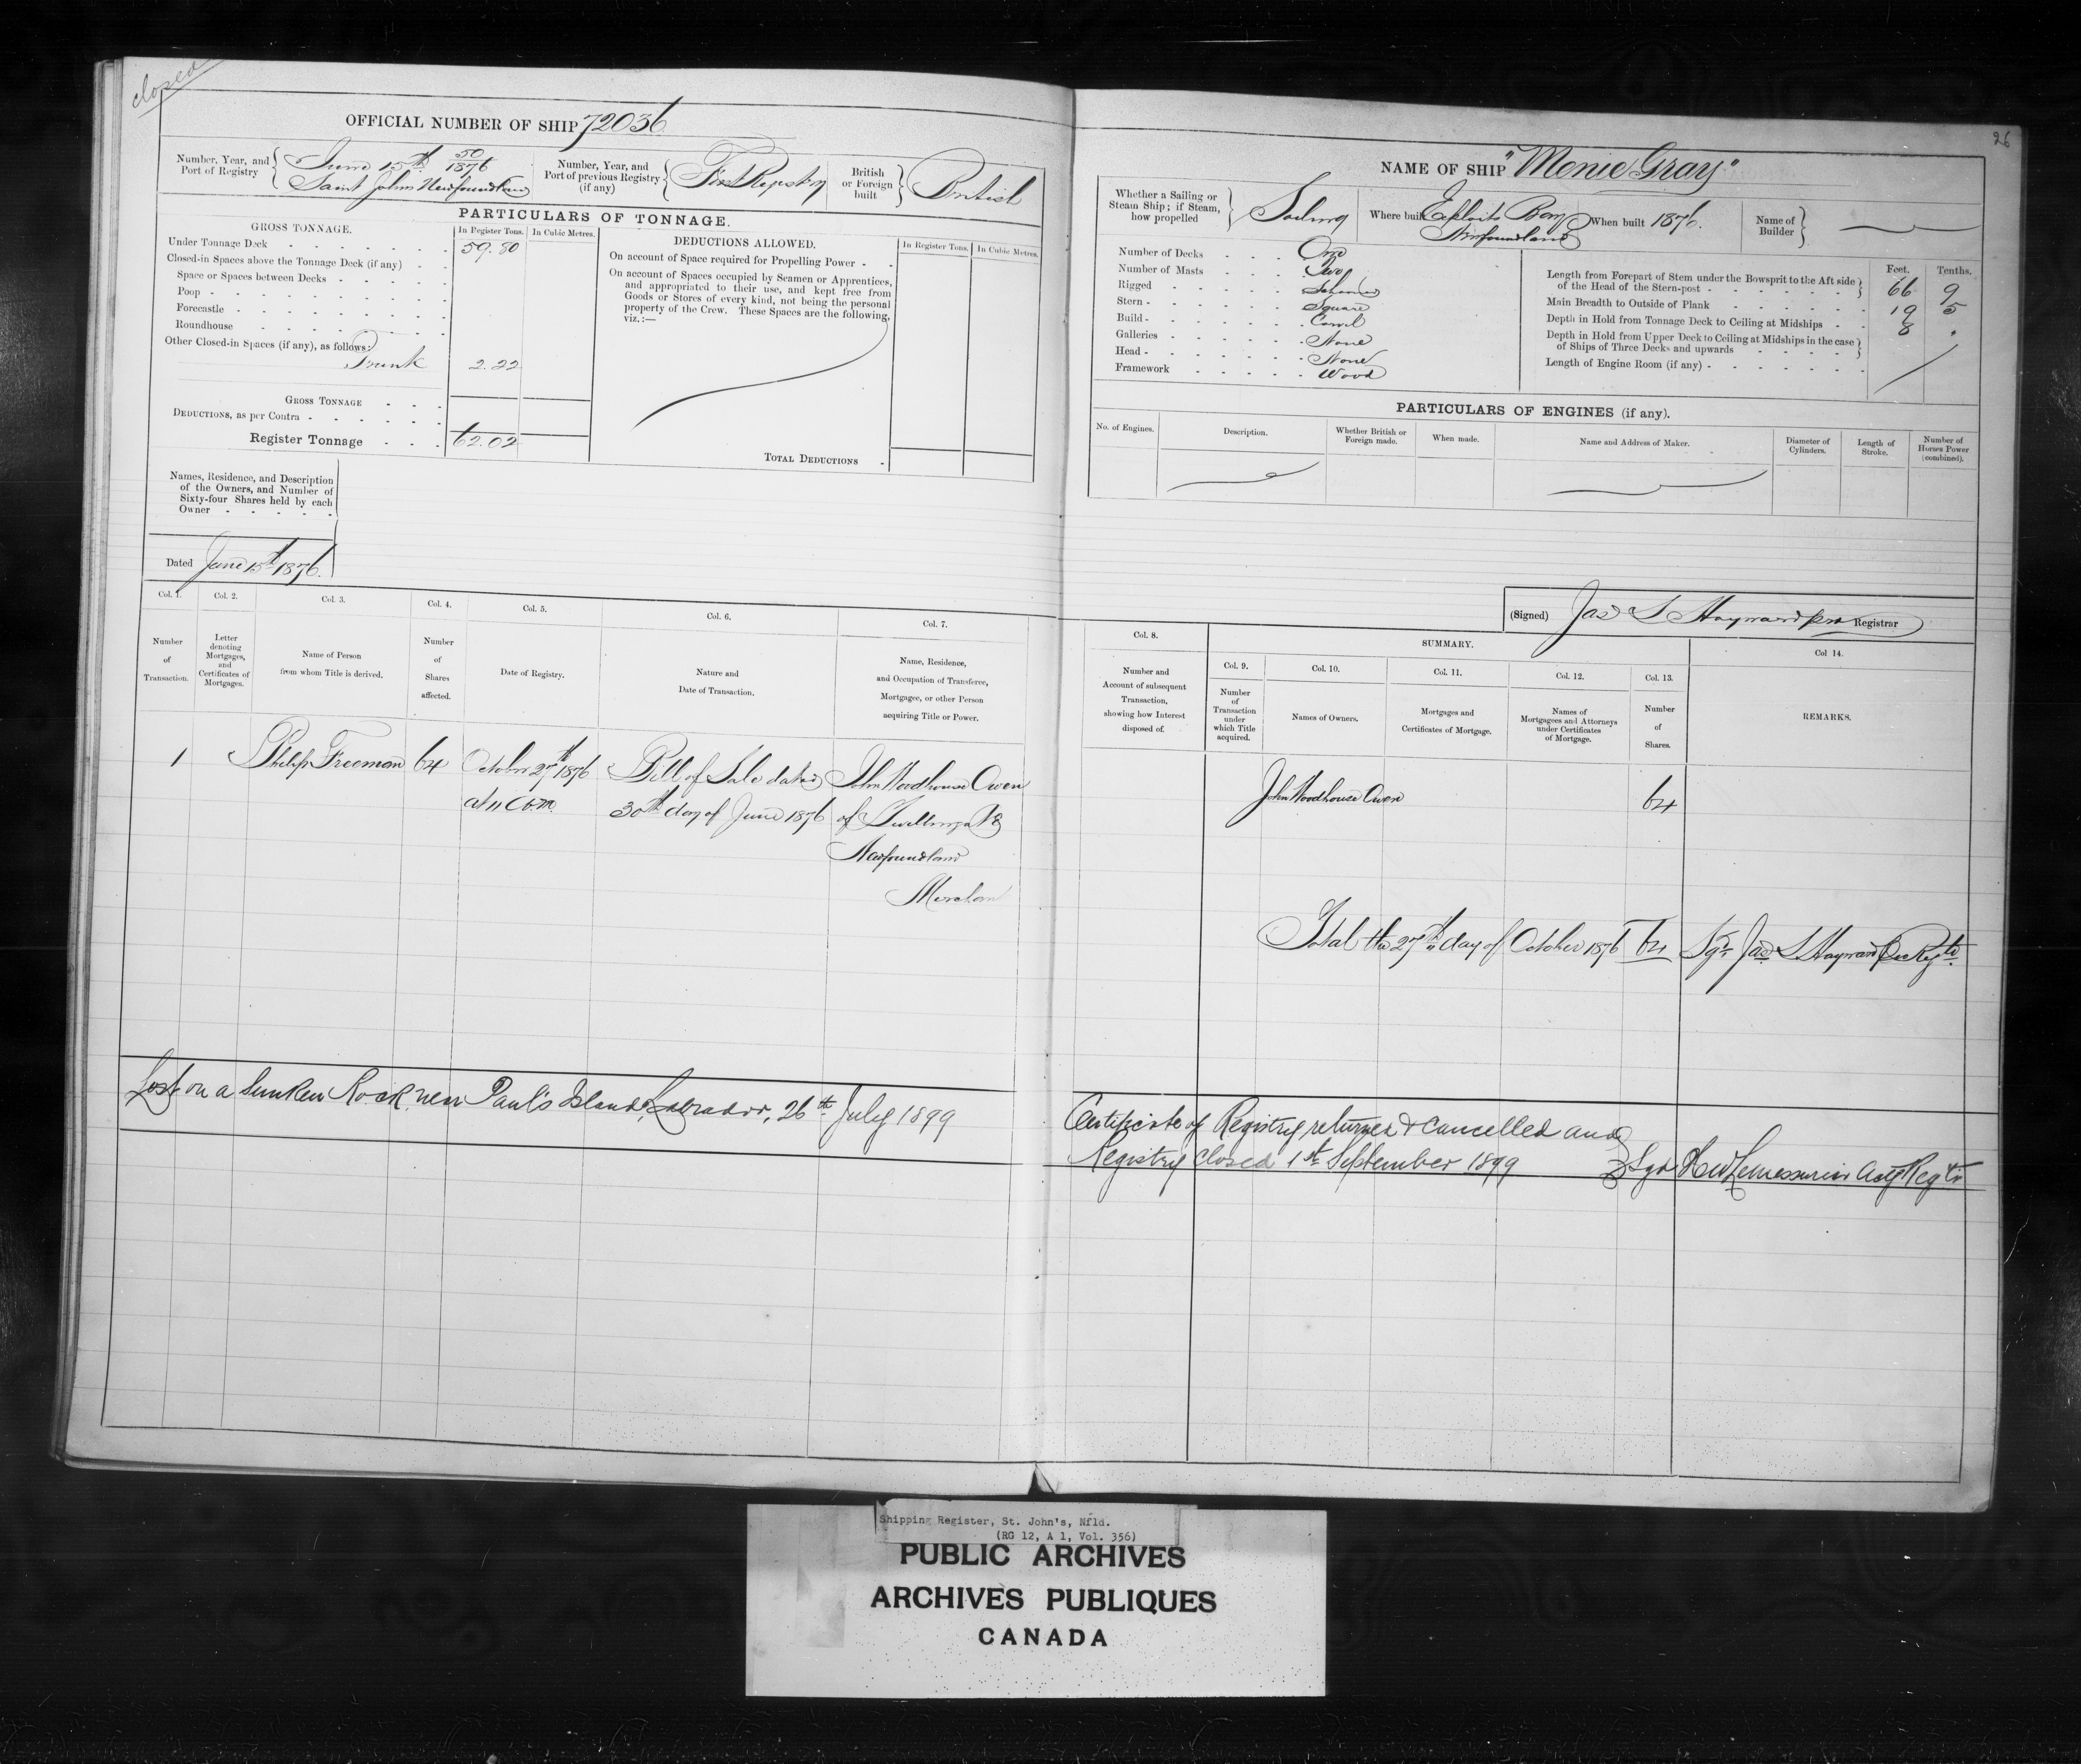 closed
OFFICIAL NUMBER OF SHIP 72036
Number, Year, and Port of Registry
50
June 15th 1876
Saint Johns Newfoundland
Number, Year, and Port of previous Registry (if any)
First Registry
British or Foreign built
British
PARTICULARS OF TONNAGE.
GROSS TONNAGE.
In Register Tons. In Cubic Metres.
Under Tonnage Deck 59.80
Closed-in Spaces above the Tonnage Deck (if any)
Space or Spaces between Decks
Poop
Forecastle
Roundhouse
Other Closed-in Spaces (if any), as follows:
Trunk 2.22
GROSS TONNAGE
DEDUCTIONS, as per Contra
Register Tonnage 62.02
DEDUCTIONS ALLOWED.
In Register Tons. In Cubic Metres.
On account of Space required for Propelling Power
On account of Spaces occupied by Seamen or Apprentices,
and appropriated to their use, and kept free from
Goods or Stores of every kind, not being the personal
property of the Crew. These Spaces are the following,
viz.:—
TOTAL DEDUCTIONS
Names, Residence, and Description
of the Owners, and Number of
Sixty-four Shares held by each
Owner
Dated June 15th 1876.
Col. 1. Col. 2. Col. 3. Col. 4. Col. 5. Col. 6. Col. 7.
Number of Transaction.
Letter denoting Mortgages, and Certificates of Mortgages.
Name of Person from whom Title is derived.
Number of Shares affected.
Date of Registry.
Nature and Date of Transaction.
Name, Residence, and Occupation of Transferee, Mortgagee, or other Person acquiring Title or Power.
1 Philip Freeman 64 October 27th 1876 Bill of Sale dated John Woodhouse Owen
at 11 a.m. 30th day of June 1876 of Twillingate
Newfoundland
Merchant
Lost on a Sunken Rock near Paul's Island, Labrador, 26th July 1899
26
NAME OF SHIP "Menie Gray"
Whether a Sailing or Steam Ship; if Steam, how propelled
Sailing
Where built
Exploits Bay
Newfoundland
When built 1876.
Name of Builder
Number of Decks One
Number of Masts Two
Rigged Schooner
Stern Square
Build Carvel
Galleries None
Head None
Framework Wood
Feet. Tenths.
Length from Forepart of Stem under the Bowsprit to the Aft side
of the Head of the Stern-post 66 9
Main Breadth to Outside of Plank 19 5
Depth in Hold from Tonnage Deck to Ceiling at Midships 8
Depth in Hold from Upper Deck to Ceiling at Midships in the case
of Ships of Three Decks and upwards
Length of Engine Room (if any)
PARTICULARS OF ENGINES (if any).
No. of Engines.
Description.
Whether British or Foreign made.
When made.
Name and Address of Maker.
Diameter of Cylinders.
Length of Stroke.
Number of Horses Power (combined).
(Signed) Jas S Hayward pro Registrar
Col. 8. SUMMARY. Col 14.
Col. 9. Col. 10. Col. 11. Col. 12. Col. 13.
Number and Account of subsequent Transaction, showing how Interest disposed of.
Number of Transaction under which Title acquired.
Names of Owners.
Mortgages and Certificates of Mortgage.
Names of Mortgagees and Attorneys under Certificates of Mortgage.
Number of Shares.
REMARKS.
John Woodhouse Owen 64
Total the 27th day of October 1876 64 Sgd Jas S Hayward
Certificate of Registry returned & cancelled and
Registry closed 1st September 1899 Sgd H W LeMessurier Actg Regtr
Shipping Register, St. John's, Nfld.
(RG 12, A 1, Vol. 356)
PUBLIC ARCHIVES
ARCHIVES PUBLIQUES
CANADA